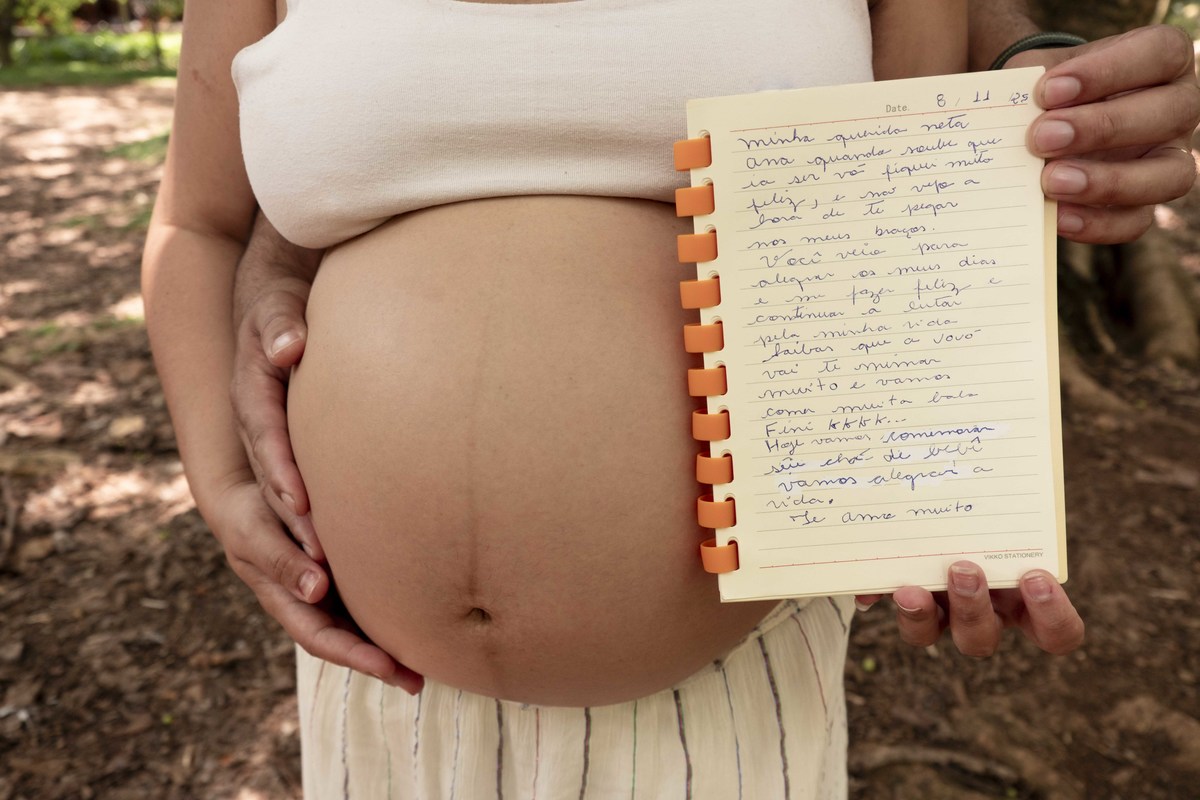 Date. 8 / 11 / 25
minha querida neta
ana quando soube que
ia ser vó fiquei muito
feliz, e não vejo a
hora de te pegar
nos meus braços.
Você veio para
alegrar os meus dias
e me fazer feliz e
continuar a lutar
pela minha vida
Saibas que a vovó
vai te mimar
muito e vamos
comer muita bala
Fini kkkk...
Hoje vamos comemorar
seu chá de bebê
vamos alegrar a
vida.
Te amo muito
VIKKO STATIONERY